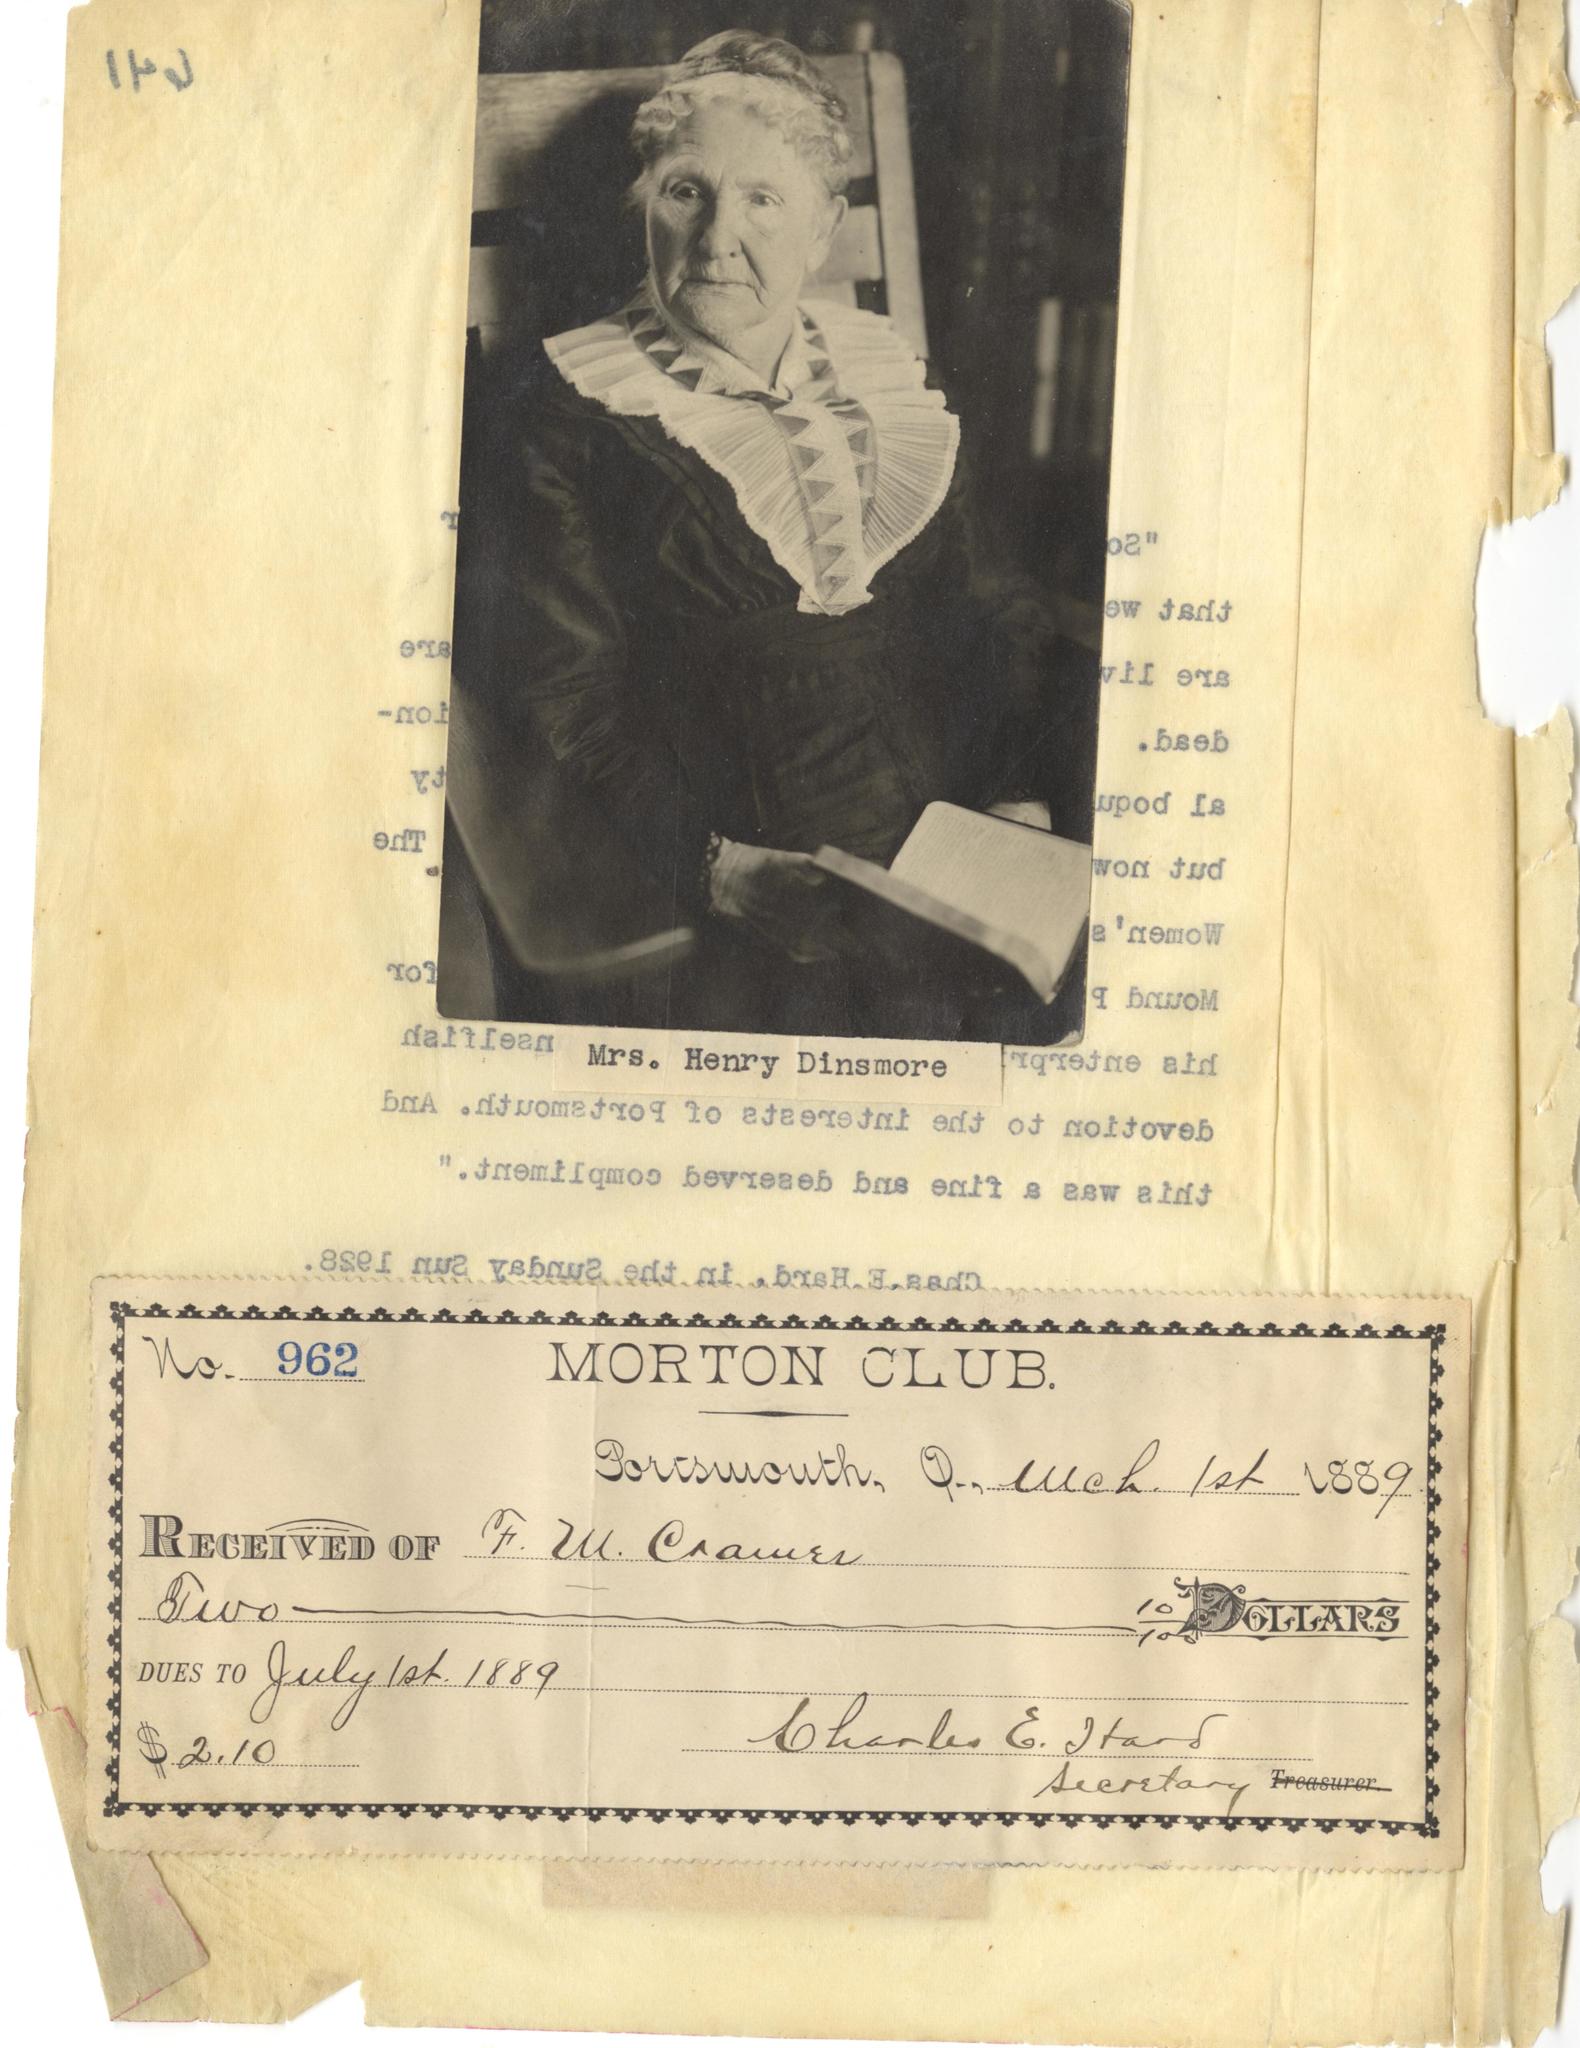 641
"So r
that we
are liv are
dead. ion-
al boqu ty
but now The
Women's .
Mound P for
his enterpr nselfish
Mrs. Henry Dinsmore
devotion to the interests of Portsmouth. And
this was a fine and deserved compliment."
Chas.E.Hard, in the Sunday Sun 1928.
No. 962 MORTON CLUB.
Portsmouth, O., Mch. 1st 1889
RECEIVED OF F. M. Cramer
Two 10/100 DOLLARS
DUES TO July 1st. 1889
$ 2.10 Charles E. Hard
Secretary Treasurer